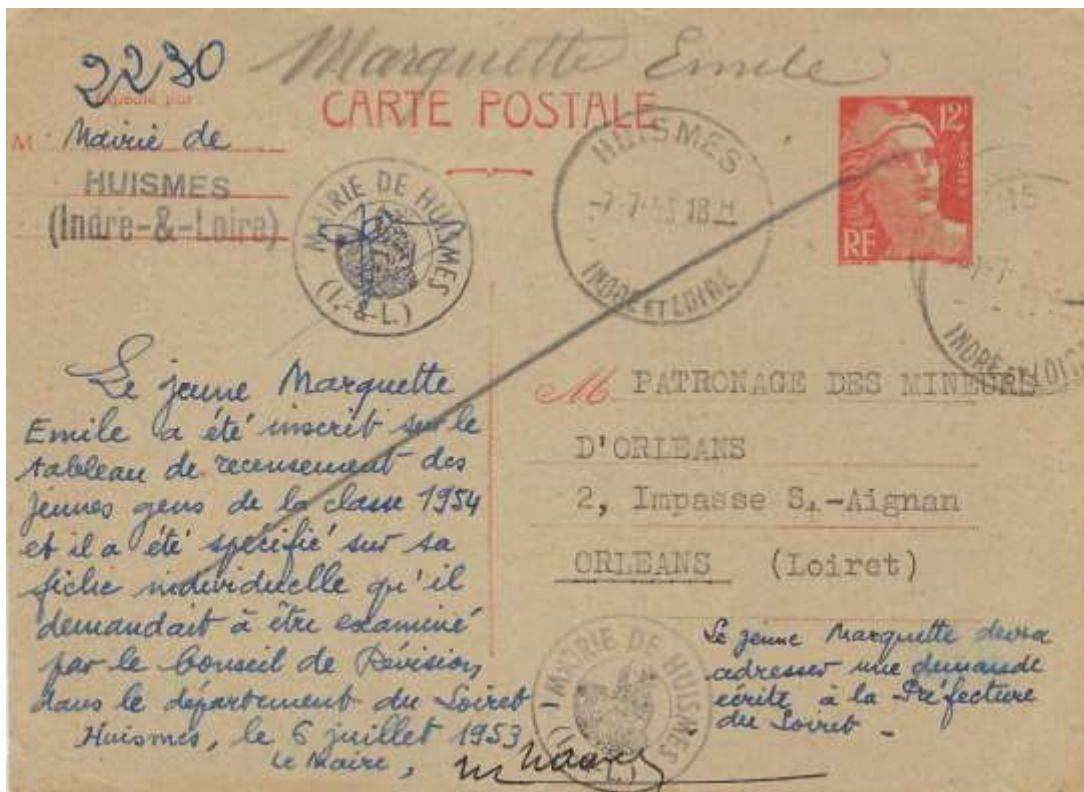 2230
Marquette Emile
CARTE POSTALE
M Mairie de
HUISMES
(Indre-&-Loire)
MAIRIE DE HUISMES
(I.-&-L.)
HUISMES
-7-7-53 18H
INDRE ET LOIRE
12F
RF
INDRE ET LOIRE
Le jeune Marquette
Emile a été inscrit sur le
tableau de recensement des
jeunes gens de la classe 1954
et il a été spécifié sur sa
fiche individuelle qu'il
demandait à être examiné
par le Conseil de Révision
dans le département du Loiret
Huismes, le 6 juillet 1953
Le Maire,
M PATRONAGE DES MINEURS
D'ORLEANS
2, Impasse St-Aignan
ORLEANS (Loiret)
Le jeune Marquette devra
adresser une demande
écrite à la Préfecture
du Loiret -
MAIRIE DE HUISMES
(I.-&-L.)